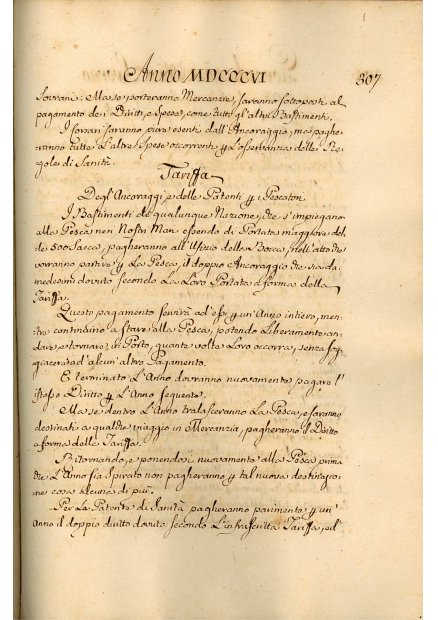 Anno MDCCCVI
307
Sovrani: Ma se porteranno Mercanzie, saranno sottoposti al
pagamento dei Diritti, e Spese, come tutti gl'altri Bastimenti.
I Corsari saranno pure esenti dall'Ancoraggio, ma paghe-
ranno tutte l'altre Spese occorrenti p l'osservanza delle Re-
gole di Sanità.
Tariffa
Degl'Ancoraggi, e delle Patenti p i Pescatori.
I Bastimenti di qualunque Nazione, che s'impiegano
alla Pesca nei Nostri Mari essendo di Portata maggiore del-
le 500 Sacca, pagheranno all'Ufizio della Bocca, nell'atto che
vorranno partire p La Pesca, il doppio Ancoraggio che sia da
medesimi dovuto secondo La Loro Portata a forma della
Tariffa.
Questo pagamento servirà ad'essi p un'Anno intiero, men-
tre continuino a stare alla Pesca, potendo Liberamente an-
dare, e tornare, in Porto, quante volte Loro occorra, senza sog-
giacere ad'alcun'altro Pagamento.
E terminato L'Anno dovranno nuovamente pagare l'
istesso Diritto p L'Anno seguente.
Ma se dentro L'Anno tralasceranno La Pesca, e saranno
destinati a qualche viaggio in Mercanzia, pagheranno il Diritto
a forma della Tariffa.
Ritornando, e ponendosi nuovamente alla Pesca prima
che L'Anno sia spirato non pagheranno p tal nuova destinazio-
ne cosa alcuna di più.
Per La Patente di Sanità pagheranno parimente p un'
Anno il doppio diritto dovuto secondo L'infrascritta Tariffa, ed